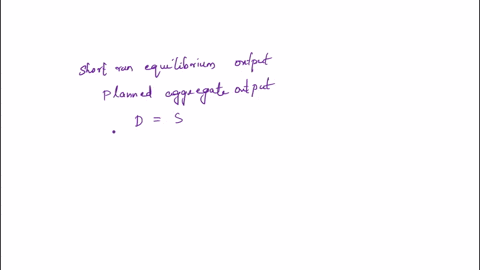 Short run equilibrium output
planned aggregate output
D = S